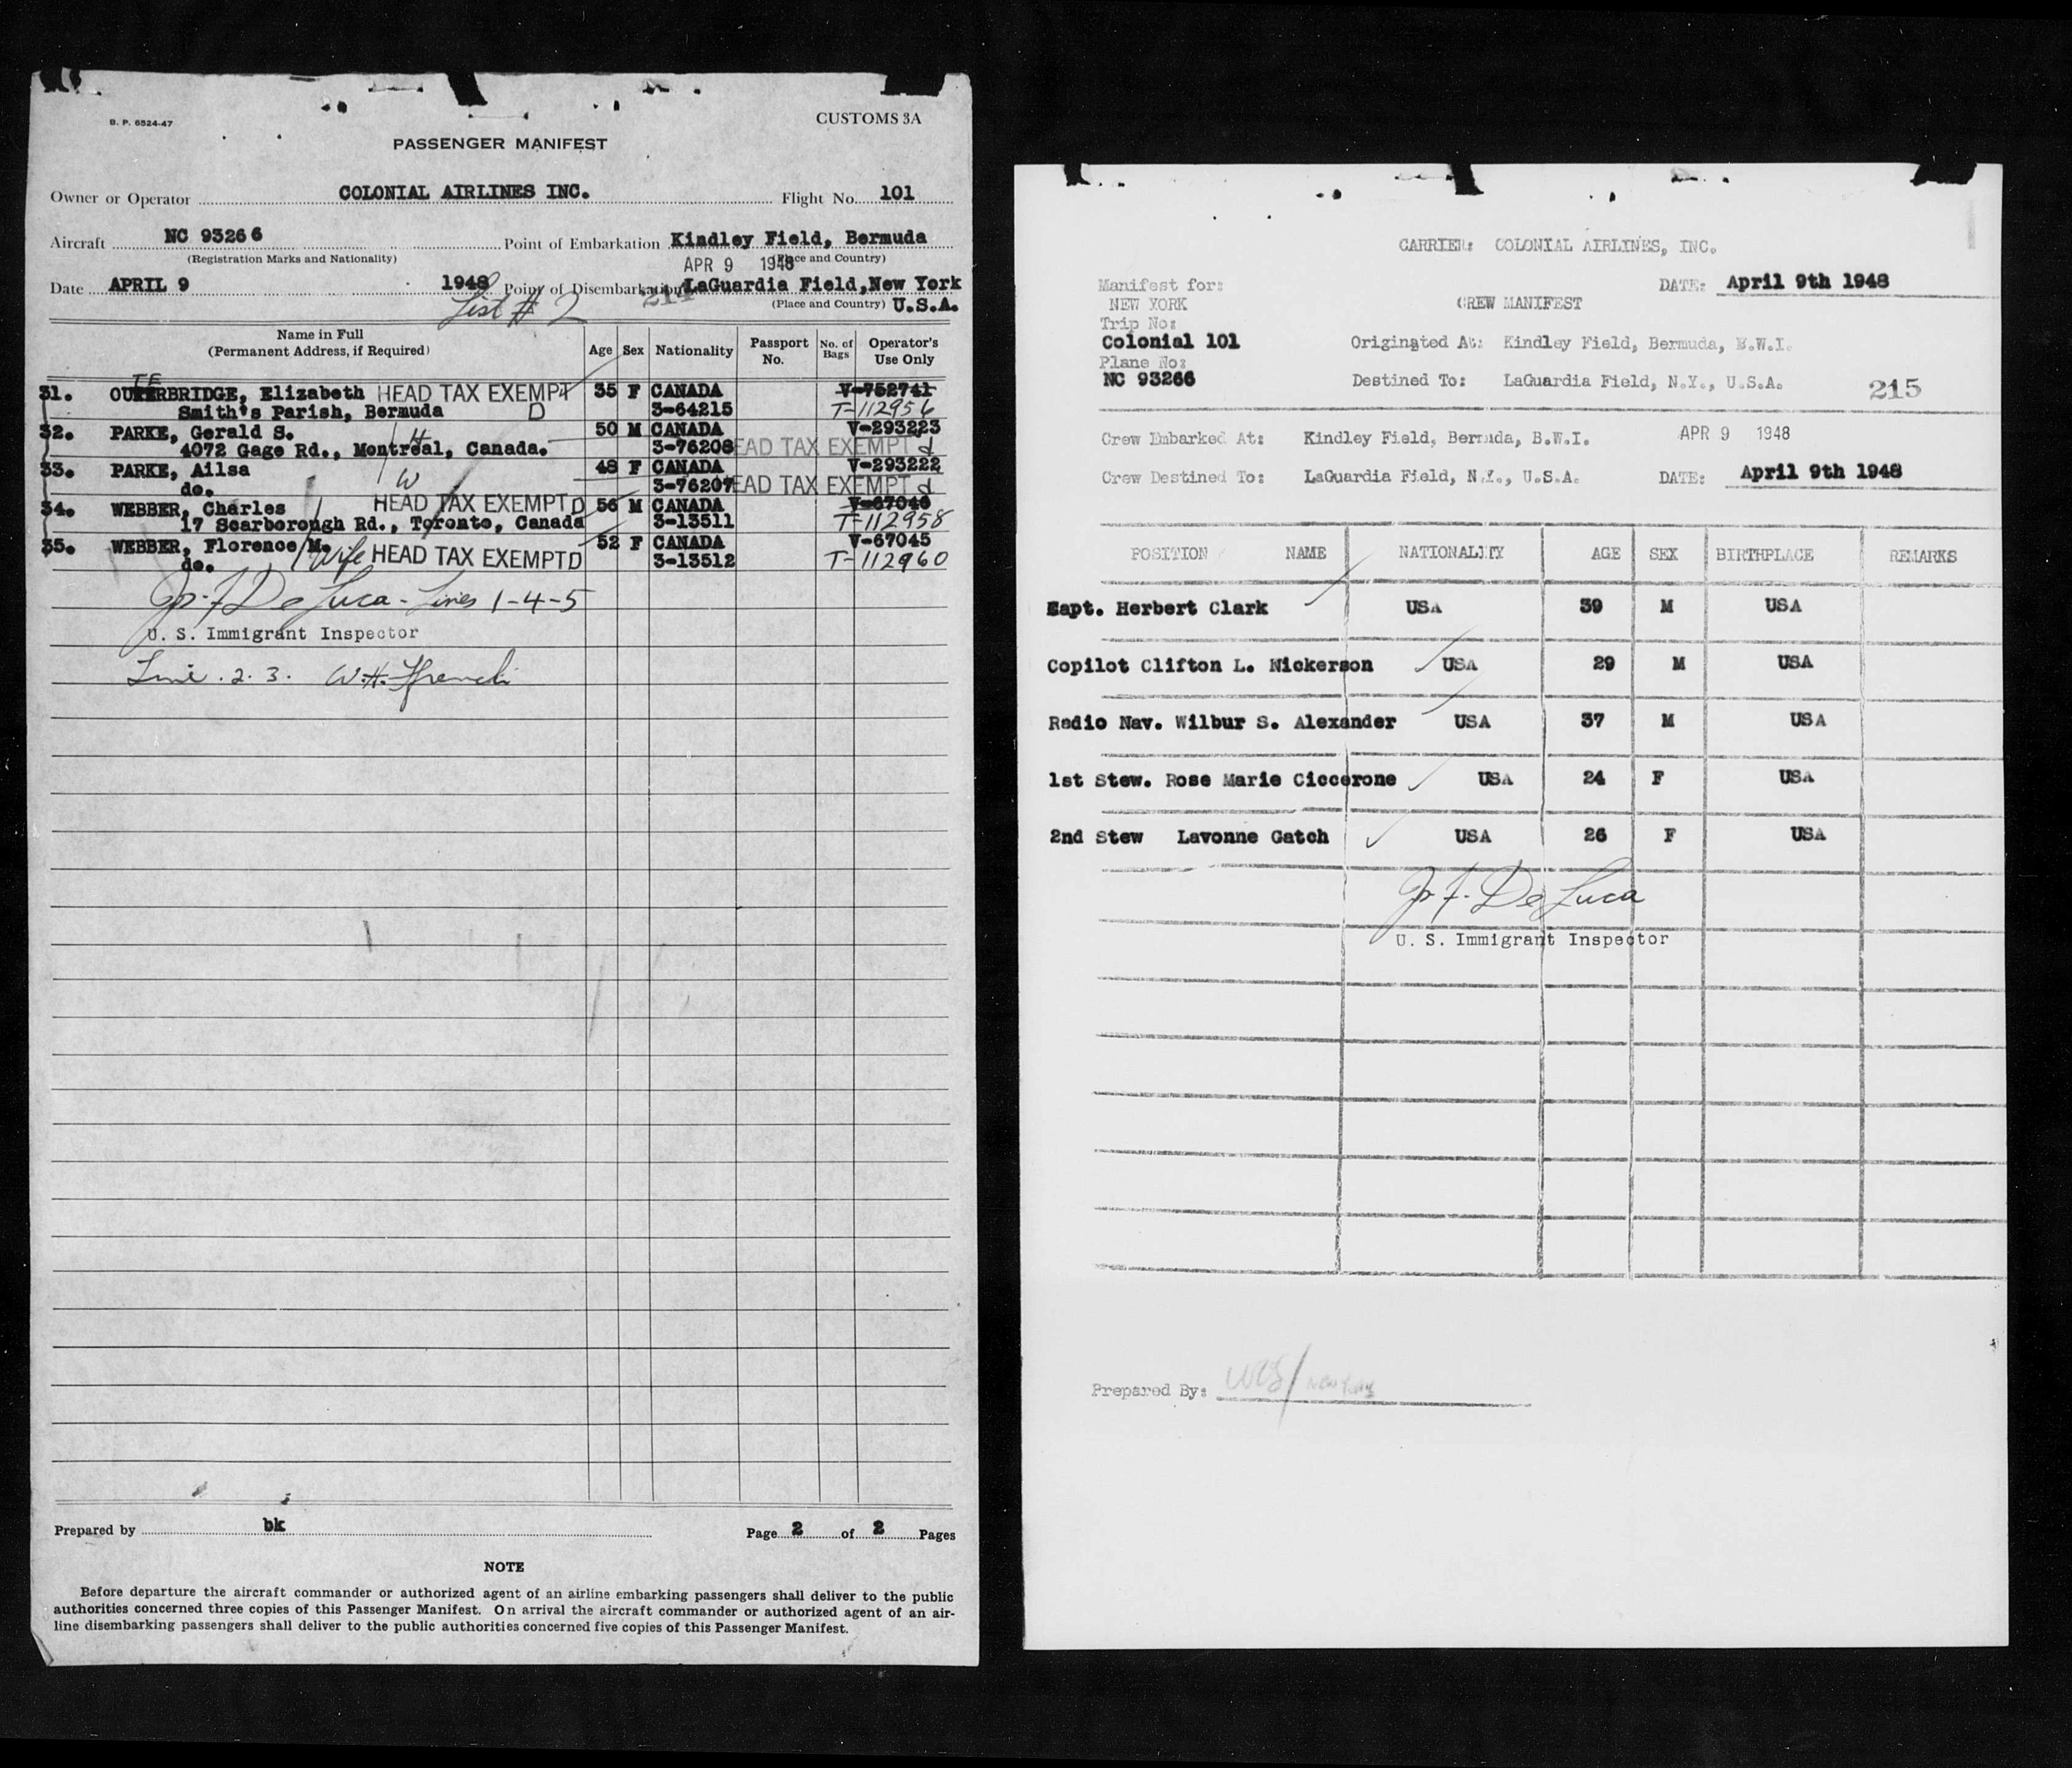 B. P. 6524-47
CUSTOMS 3A
PASSENGER MANIFEST
Owner or Operator COLONIAL AIRLINES INC. Flight No. 101
Aircraft NC 93266 Point of Embarkation Kindley Field, Bermuda
(Registration Marks and Nationality) APR 9 1948 (Place and Country)
Date APRIL 9 1948 Point of Disembarkation LaGuardia Field, New York
List # 2 214 (Place and Country) U.S.A.
Name in Full (Permanent Address, if Required) Age Sex Nationality Passport No. No. of Bags Operator's Use Only
TE
31. OUTERBRIDGE, Elizabeth HEAD TAX EXEMPT 35 F CANADA V-752741
Smith's Parish, Bermuda D 3-64215 T-112956
32. PARKE, Gerald S. H 50 M CANADA V-293223
4072 Gage Rd., Montreal, Canada. 3-76208 HEAD TAX EXEMPT d
33. PARKE, Ailsa W 48 F CANADA V-293222
do. 3-76207 HEAD TAX EXEMPT d
34. WEBBER, Charles HEAD TAX EXEMPT D 56 M CANADA V-67046
17 Scarborough Rd., Toronto, Canada 3-13511 T-112958
35. WEBBER, Florence M. Wife HEAD TAX EXEMPT D 52 F CANADA V-67045
do. 3-13512 T-112960
Jos. F. DeLuca - Lines 1-4-5
U. S. Immigrant Inspector
Line. 2. 3. W.H. French
Prepared by bk Page 2 of 2 Pages
NOTE
Before departure the aircraft commander or authorized agent of an airline embarking passengers shall deliver to the public
authorities concerned three copies of this Passenger Manifest. On arrival the aircraft commander or authorized agent of an air-
line disembarking passengers shall deliver to the public authorities concerned five copies of this Passenger Manifest.
CARRIER: COLONIAL AIRLINES, INC.
Manifest for: DATE: April 9th 1948
NEW YORK CREW MANIFEST
Trip No:
Colonial 101 Originated At: Kindley Field, Bermuda, B.W.I.
Plane No:
NC 93266 Destined To: LaGuardia Field, N.Y., U.S.A. 215
Crew Embarked At: Kindley Field, Bermuda, B.W.I. APR 9 1948
Crew Destined To: LaGuardia Field, N.Y., U.S.A. DATE: April 9th 1948
POSITION NAME NATIONALITY AGE SEX BIRTHPLACE REMARKS
Capt. Herbert Clark USA 39 M USA
Copilot Clifton L. Nickerson USA 29 M USA
Radio Nav. Wilbur S. Alexander USA 37 M USA
1st Stew. Rose Marie Ciccerone USA 24 F USA
2nd Stew Lavonne Gatch USA 26 F USA
Jos. F. DeLuca
U. S. Immigrant Inspector
Prepared By: